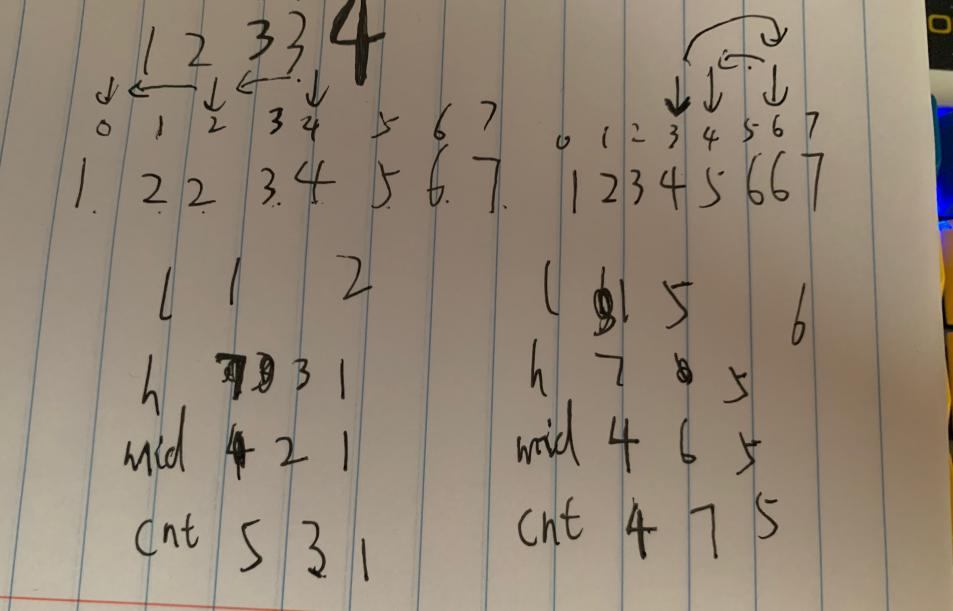 1 2 3 3 4
0 1 2 3 4 5 6 7
1 2 2 3 4 5 6 7
l 1 2
h 3 1
mid 4 2 1
cnt 5 3 1
0 1 2 3 4 5 6 7
1 2 3 4 5 6 6 7
l 1 5 6
h 7 5
mid 4 6 5
cnt 4 7 5